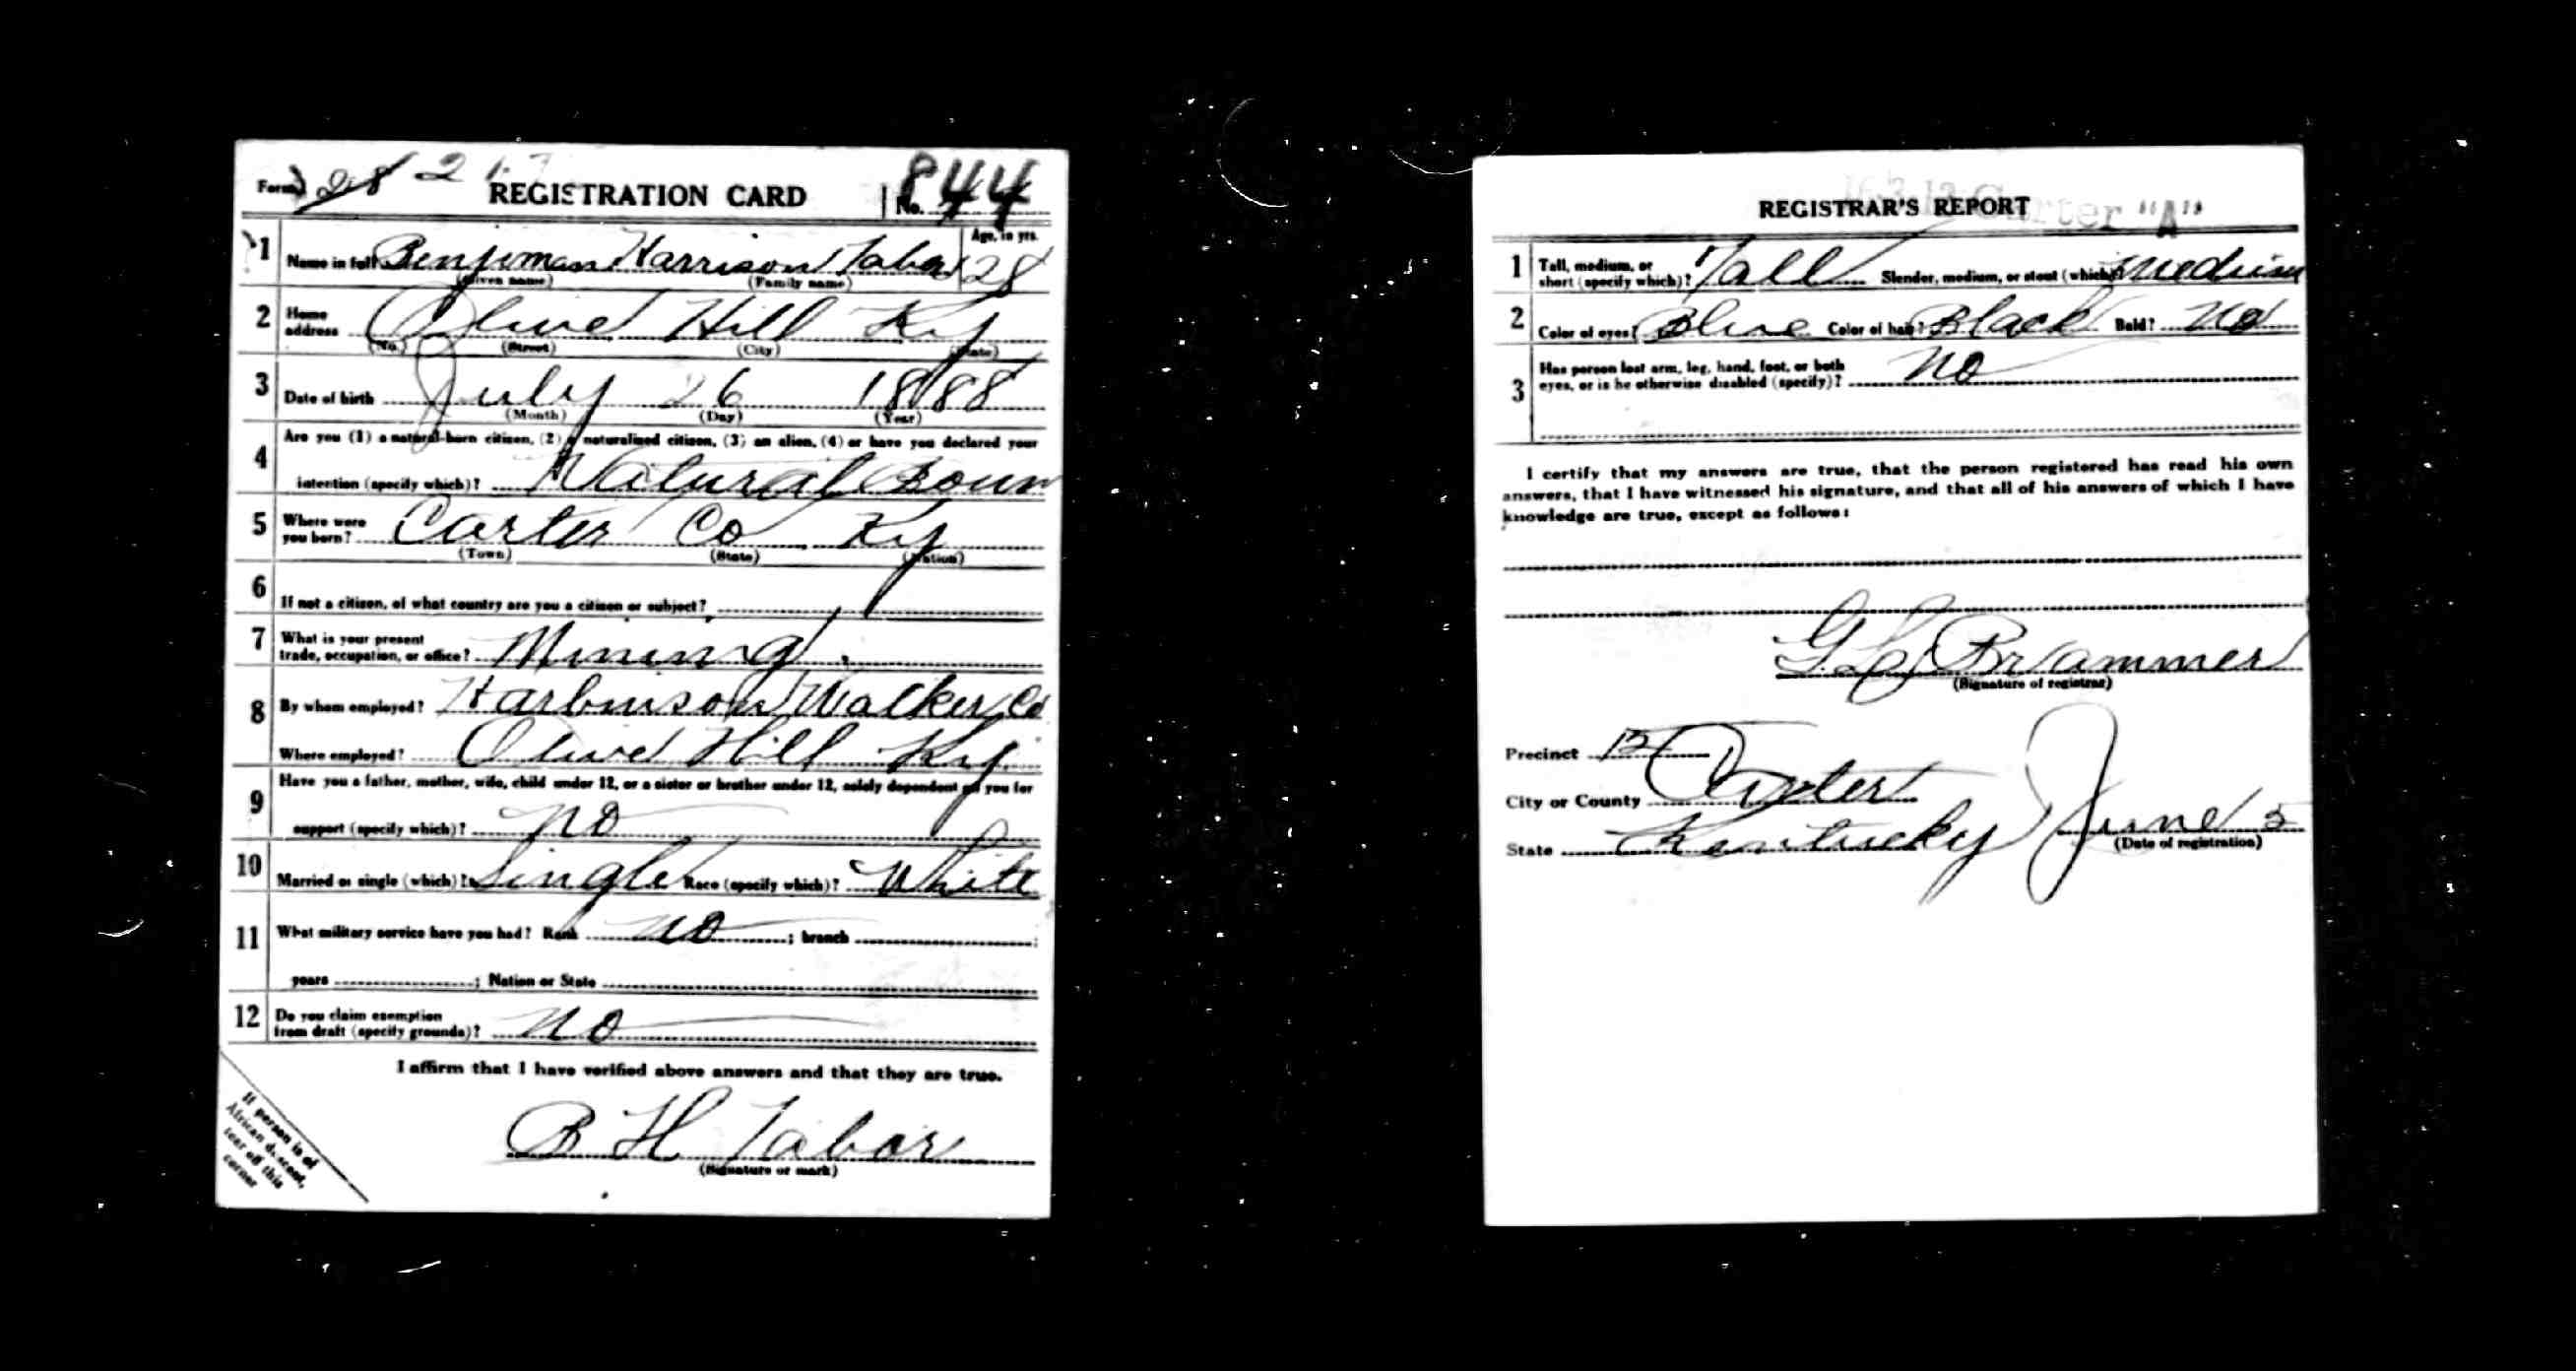 Form 1 28 REGISTRATION CARD No. 844
1 Name in full Benjiman Harrison Tabor Age, in yrs. 28
(Given name) (Family name)
2 Home address Olive Hill Ky
(No.) (Street) (City) (State)
3 Date of birth July 26 1888
(Month) (Day) (Year)
4 Are you (1) a natural-born citizen, (2) a naturalized citizen, (3) an alien, (4) or have you declared your
intention (specify which)? Natural Boun
5 Where were you born? Carter Co Ky
(Town) (State) (Nation)
6 If not a citizen, of what country are you a citizen or subject?
7 What is your present trade, occupation, or office? Mining
8 By whom employed? Harbinson Walker Co
Where employed? Olive Hill Ky
9 Have you a father, mother, wife, child under 12, or a sister or brother under 12, solely dependent on you for
support (specify which)? no
10 Married or single (which)? Single Race (specify which)? White
11 What military service have you had? Rank no ; branch ;
years ; Nation or State
12 Do you claim exemption from draft (specify grounds)? no
I affirm that I have verified above answers and that they are true.
B H Tabor
(Signature or mark)
If person is of
African descent,
tear off this
corner
Carter "A"
REGISTRAR'S REPORT
1 Tall, medium, or short (specify which)? Tall Slender, medium, or stout (which)? medium
2 Color of eyes? Blue Color of hair? Black Bald? no
3 Has person lost arm, leg, hand, foot, or both
eyes, or is he otherwise disabled (specify)? no
I certify that my answers are true, that the person registered has read his own
answers, that I have witnessed his signature, and that all of his answers of which I have
knowledge are true, except as follows:
Brammer
(Signature of registrar)
Precinct 15
City or County Carter
State Kentucky June 5
(Date of registration)